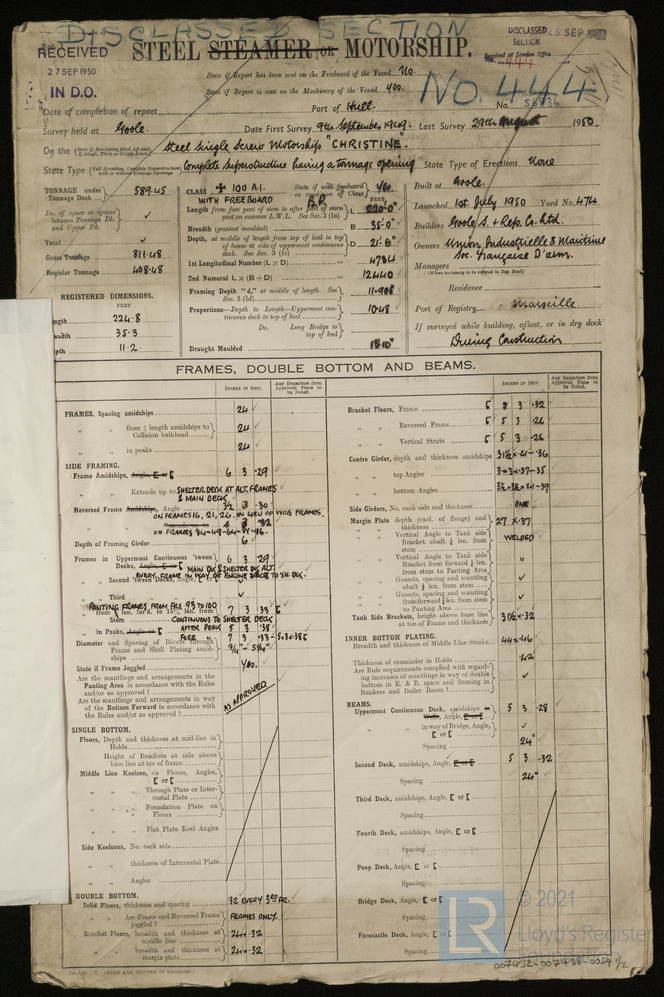 DISCLASSED SECTION
DISCLASSED SECTION.
RECEIVED
27 SEP 1950
IN D.O.
STEEL STEAMER OR MOTORSHIP.
Received at London Office
No. 444
State if Report has been sent on the Freeboard of the Vessel No.
State if Report is sent on the Machinery of the Vessel Yes.
No. 444
Date of completion of report
Port of Hull
No. 56836
Survey held at Goole. Date First Survey 9th September, 1949. Last Survey 29th August 1950.
On the Steel Single Screw Motorship "CHRISTINE".
State Type Complete Superstructure having a tonnage opening State Type of Erections None
TONNAGE under Tonnage Deck 589.45
Do. of space or spaces between Tonnage Dk. and Upper Dk.
Total
Gross Tonnage 811.48
Register Tonnage 408.48
REGISTERED DIMENSIONS.
FEET
224.8
35.3
11.2
CLASS ✠ 100 A.1. State if with freeboard as condition of Class Yes.
WITH FREEBOARD
Length from fore part of stem to after part of stern post on summer L.W.L. See Sec. 3 (1a) L 220-0"
Breadth (greatest moulded) B 35-0"
Depth, at middle of length from top of keel to top of beam at side of uppermost continuous deck. See Sec. 3 (1c) D 21-6"
1st Longitudinal Number (L × D) 4734
2nd Numeral L × (B + D) 12440
Framing Depth "d," at middle of length. See Sec. 3 (1d) 11.908
Proportions—Depth to Length—Uppermost continuous deck to top of keel 10.48
Do. Long Bridge to top of keel
Draught Moulded
Built at Goole.
Launched 1st. July 1950 Yard No. 474
Builders Goole S. & Rep. Co. Ltd.
Owners Union Industrielle & Maritime Soc. Française D'arm.
Managers
(Where necessary to be entered in Reg. Book)
Residence
Port of Registry Marseille
If surveyed while building, afloat, or in dry dock
During Construction
FRAMES, DOUBLE BOTTOM AND BEAMS.
INCHES IN SHIP.
Any Departure from Approved Plans to be Noted.
FRAMES, Spacing amidships 24
" " from ⅕ length amidships to Collision bulkhead 24
" " in peaks 24
SIDE FRAMING.
Frame Amidships, Angle, E or [ 6 3 .29
" " Extends up to SHELTER DECK AT ALT. FRAMES & MAIN DECK
Reversed Frame Amidships, Angle 3½ 3 .30
ON FRAMES 16, 21, 26. IN LIEU OF WEB FRAMES
4 3 .32
Depth of Framing Girder 6
Frames in Uppermost Continuous 'tween Decks, Angle, E or [ 6 3 .29
MAIN DK & SHELTER DK ALT.
" " Second 'tween Decks, Angle, E or [
EVERY FRAME IN WAY OF ENGINE SPACE TO SH. DK.
" " Third
PANTING FRAMES FROM FRS 93 TO 100 7 3 .33
Stem CONTINUOUS TO SHELTER DECK
" in Peaks, Angle or [ AFTER PEAK 5 3 .38
FORE " 7 3 .33
Diameter and Spacing of Rivets through Frame and Shell Plating amidships ¾" - 5¼"
State if Frame Joggled Yes.
Are the scantlings and arrangements in the Panting Area in accordance with the Rules and/or as approved?
Are the scantlings and arrangements in way of the Bottom Forward in accordance with the Rules and/or as approved?
AS APPROVED
SINGLE BOTTOM.
Floors, Depth and thickness at mid-line in Holds
Height of Brackets at side above base line at toe of frame
Middle Line Keelson, on Floors, Angles, E or [
" " Through Plate or Intercostal Plate
" " Foundation Plate on Floors
" " Flat Plate Keel Angles
Side Keelsons, No. each side
" " thickness of Intercostal Plate
" " Angles
DOUBLE BOTTOM.
Solid Floors, thickness and spacing .32 EVERY 3RD FR.
" " Are Frame and Reversed Frame joggled? FRAMES ONLY.
Bracket Floors, breadth and thickness at middle line 24 × .32
" " breadth and thickness at margin plate 24 × .32
INCHES IN SHIP.
Any Departure from Approved Plans to be Noted.
Bracket Floors, Frame 3 .32
" " Reversed Frame 5 3 .26
" " Vertical Struts 5 3 .26
Centre Girder, depth and thickness amidships 31½ × .41 - .36
" " top Angles 3 × 3 × .37 - .35
" " bottom Angles 3½ × 3½ × .41 - .39
Side Girders, No. each side and thickness ONE
Margin Plate depth (excl. of flange) and thickness 27 × .37
" " Vertical Angle to Tank side Bracket abaft ¼ len. from stem WELDED
" " Vertical Angle to Tank side Bracket from forward ¼ len. from stem to Panting Area "
" " Gussets, spacing and scantling abaft ¼ len. from stem
" " Gussets, spacing and scantling from forward ¼ len. from stem to Panting Area
Tank Side Brackets, height above base line at toe of Frame and thickness 31½ × .32
INNER BOTTOM PLATING.
Breadth and thickness of Middle Line Strake 44 × .46
Thickness of remainder in Holds .42
Are Rule requirements complied with regarding increases of scantlings in way of double bottom in E. & B. space and framing in Bunkers and Boiler Room?
BEAMS.
Uppermost Continuous Deck, amidships in Wells, Angle, E or [ 5 3 .28
" " in way of Bridge, Angle, E or [
Spacing 24"
Second Deck, amidships, Angle, E or [ 5 3 .32
Spacing 24"
Third Deck, amidships, Angle, E or [
Spacing
Fourth Deck, amidships, Angle, E or [
Spacing
Poop Deck, Angle, E or [
Spacing
Bridge Deck, Angle, E or [
Spacing
Forecastle Deck, Angle, E or [
Spacing
© 2021
LR
Lloyd's Register
Foundation
007432-007438-0059 1/2